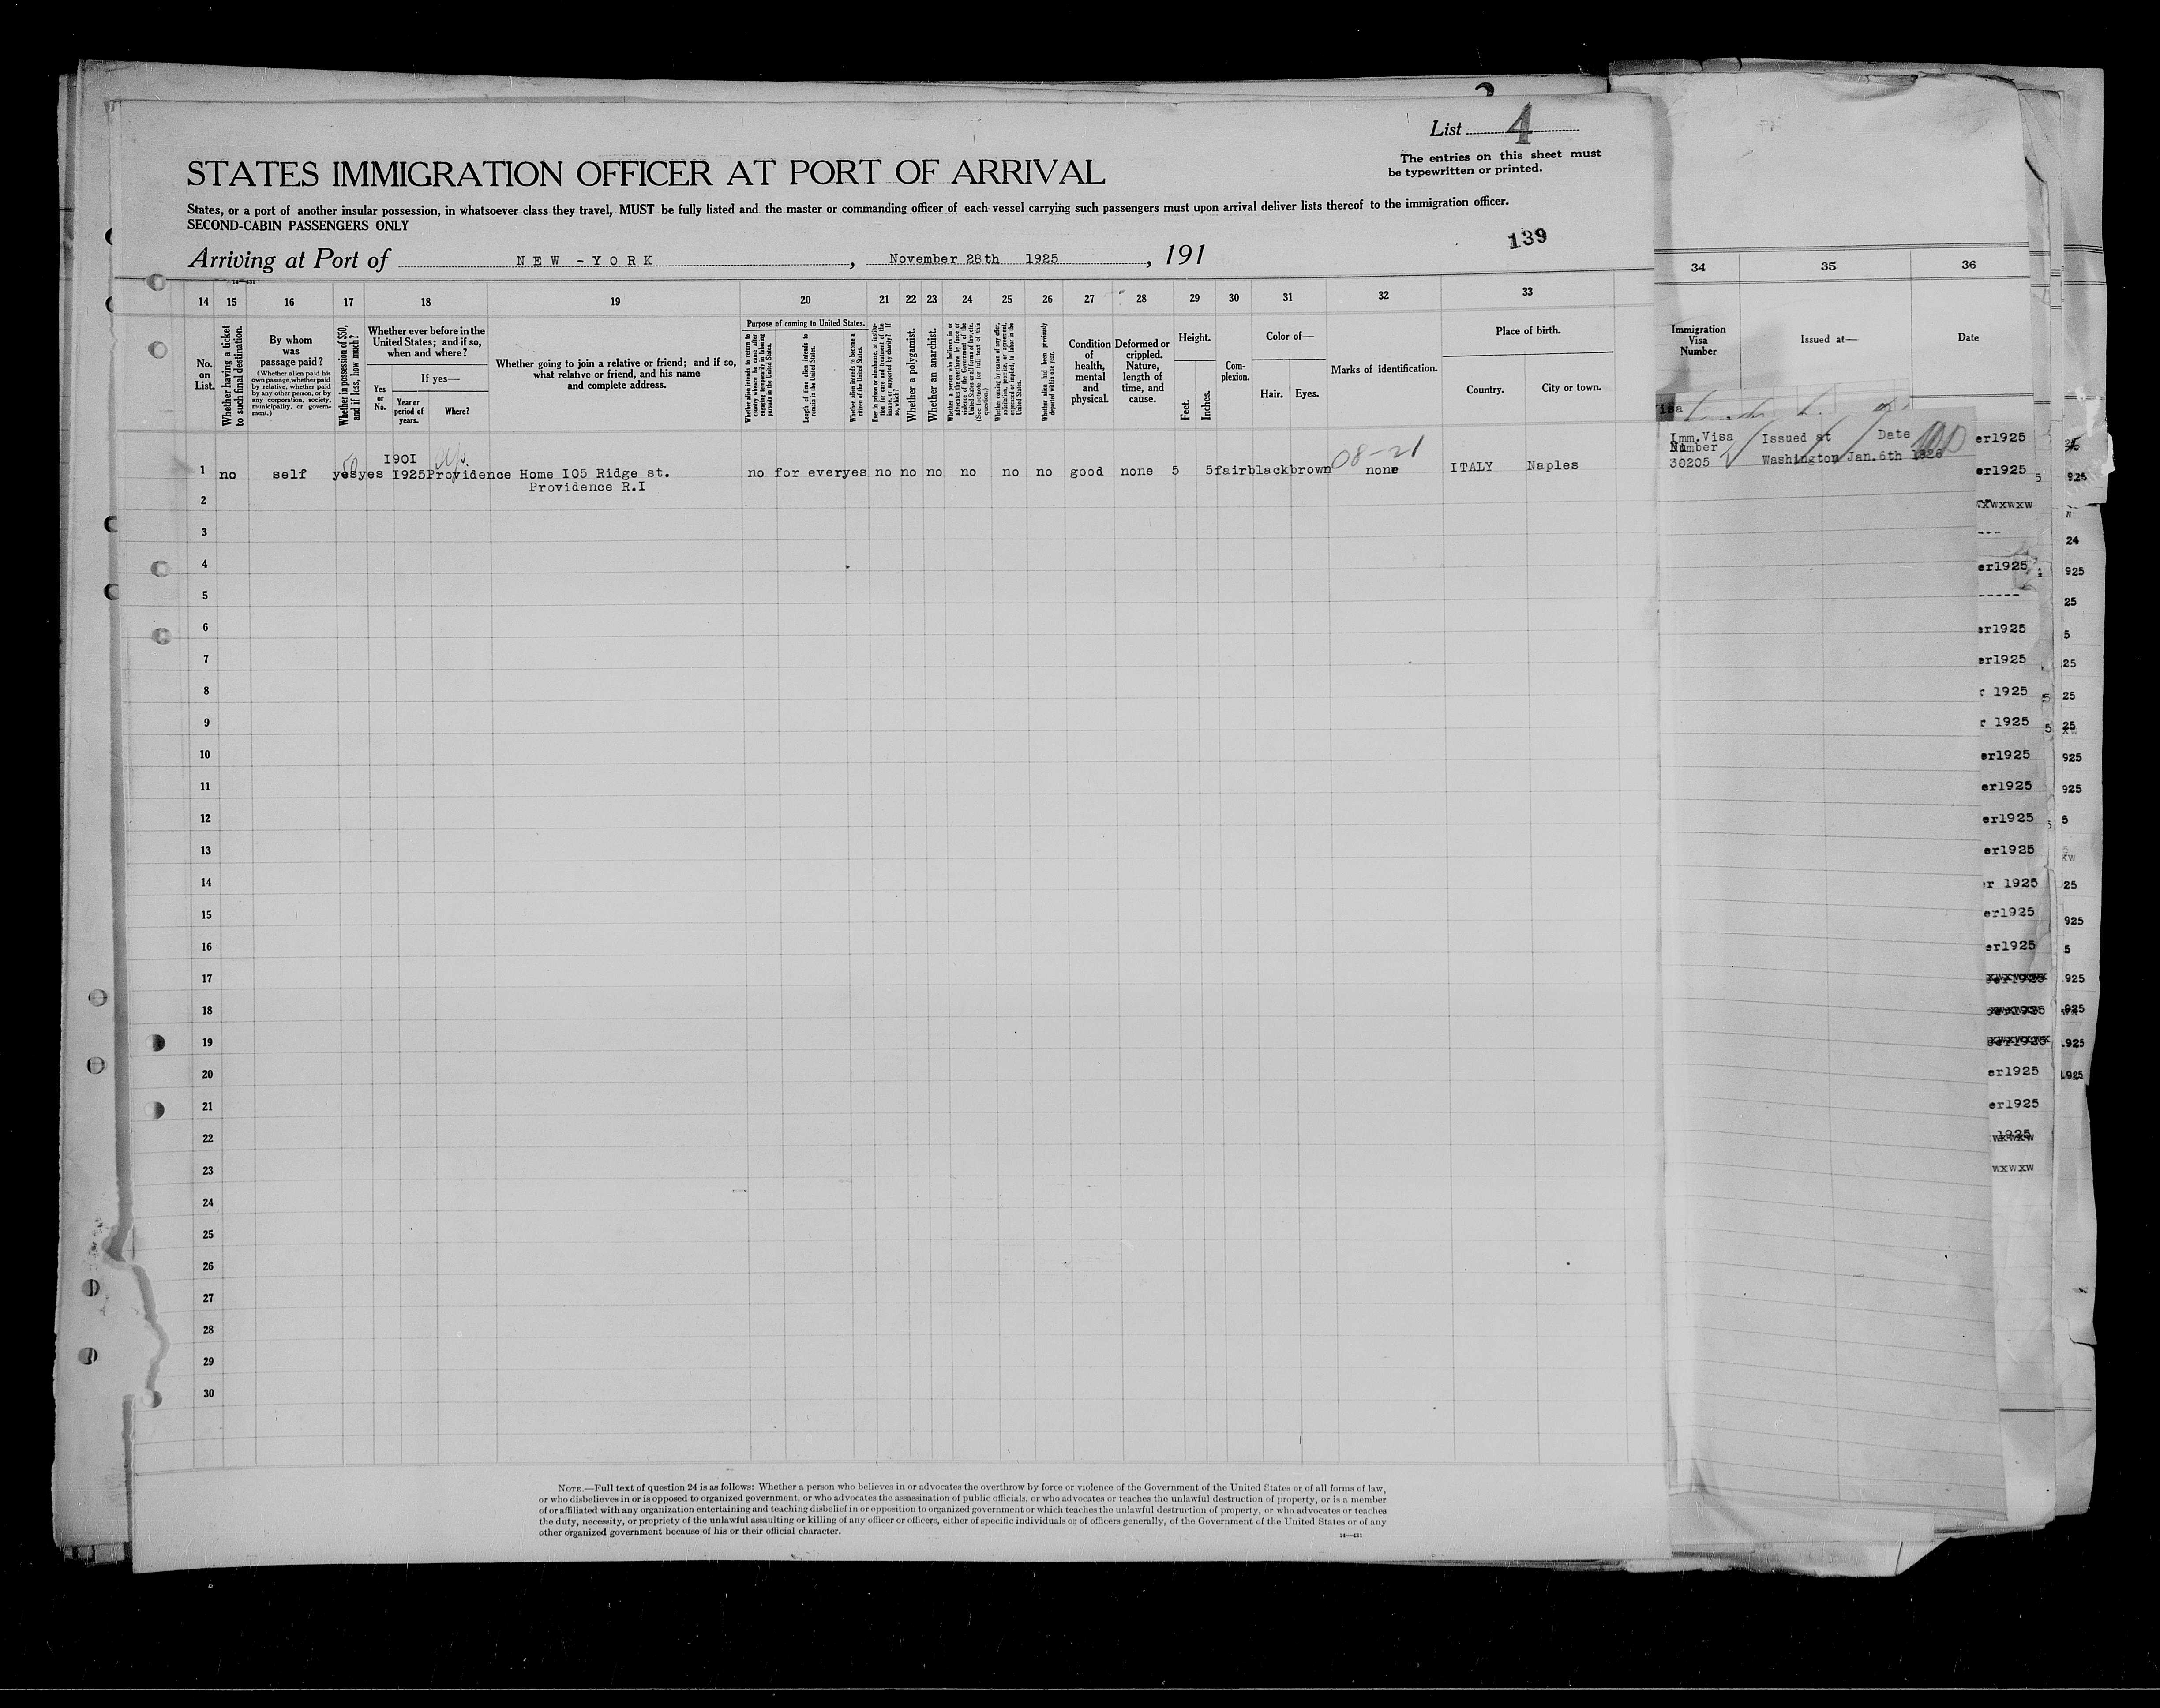 List 4
The entries on this sheet must
be typewritten or printed.
STATES IMMIGRATION OFFICER AT PORT OF ARRIVAL
States, or a port of another insular possession, in whatsoever class they travel, MUST be fully listed and the master or commanding officer of each vessel carrying such passengers must upon arrival deliver lists thereof to the immigration officer.
SECOND-CABIN PASSENGERS ONLY
139
Arriving at Port of NEW-YORK, November 28th 1925, 191
14—431
14 15 16 17 18 19 20 21 22 23 24 25 26 27 28 29 30 31 32 33 34 35 36
No. on List.
Whether having a ticket to such final destination.
By whom was passage paid?
(Whether alien paid his own passage, whether paid by relative, whether paid by any other person, or by any corporation, society, municipality, or government.)
Whether in possession of $50, and if less, how much?
Whether ever before in the United States; and if so, when and where?
Yes or No.
If yes—
Year or period of years.
Where?
Whether going to join a relative or friend; and if so, what relative or friend, and his name and complete address.
Purpose of coming to United States.
Whether alien intends to return to country whence he came after engaging temporarily in laboring pursuits in the United States.
Length of time alien intends to remain in the United States.
Whether alien intends to become a citizen of the United States.
Ever in prison or almshouse, or institution for care and treatment of the insane, or supported by charity? If so, which?
Whether a polygamist.
Whether an anarchist.
Whether a person who believes in or advocates the overthrow by force or violence of the Government of the United States or all forms of law, etc. (See footnote for full text of this question.)
Whether coming by reason of any offer, solicitation, promise, or agreement, expressed or implied, to labor in the United States.
Whether alien had been previously deported within one year.
Condition of health, mental and physical.
Deformed or crippled. Nature, length of time, and cause.
Height.
Feet.
Inches.
Complexion.
Color of—
Hair.
Eyes.
Marks of identification.
Place of birth.
Country.
City or town.
Immigration Visa Number
Issued at—
Date
Imm.Visa Number Issued at Date
30205 Washington Jan.6th 1926
1901
08-21
1 no self yes yes 1925 Providence Home I05 Ridge st. no for ever yes no no no no no no good none 5 5 fair black brown none ITALY Naples
Providence R.I
2
3
4
5
6
7
8
9
10
11
12
13
14
15
16
17
18
19
20
21
22
23
24
25
26
27
28
29
30
er1925
er1925
er1925
er1925
er1925
r 1925
r 1925
er1925
er1925
er1925
er1925
r 1925
er1925
er1925
er1925
er1925
NOTE.—Full text of question 24 is as follows: Whether a person who believes in or advocates the overthrow by force or violence of the Government of the United States or of all forms of law,
or who disbelieves in or is opposed to organized government, or who advocates the assassination of public officials, or who advocates or teaches the unlawful destruction of property, or is a member
of or affiliated with any organization entertaining and teaching disbelief in or opposition to organized government or which teaches the unlawful destruction of property, or who advocates or teaches
the duty, necessity, or propriety of the unlawful assaulting or killing of any officer or officers, either of specific individuals or of officers generally, of the Government of the United States or of any
other organized government because of his or their official character.
14—431